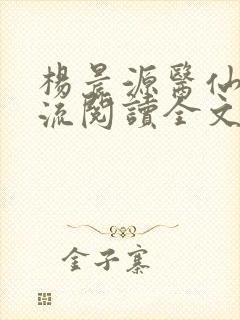 楊晨源醫仙
流閱讀全文
金子寨